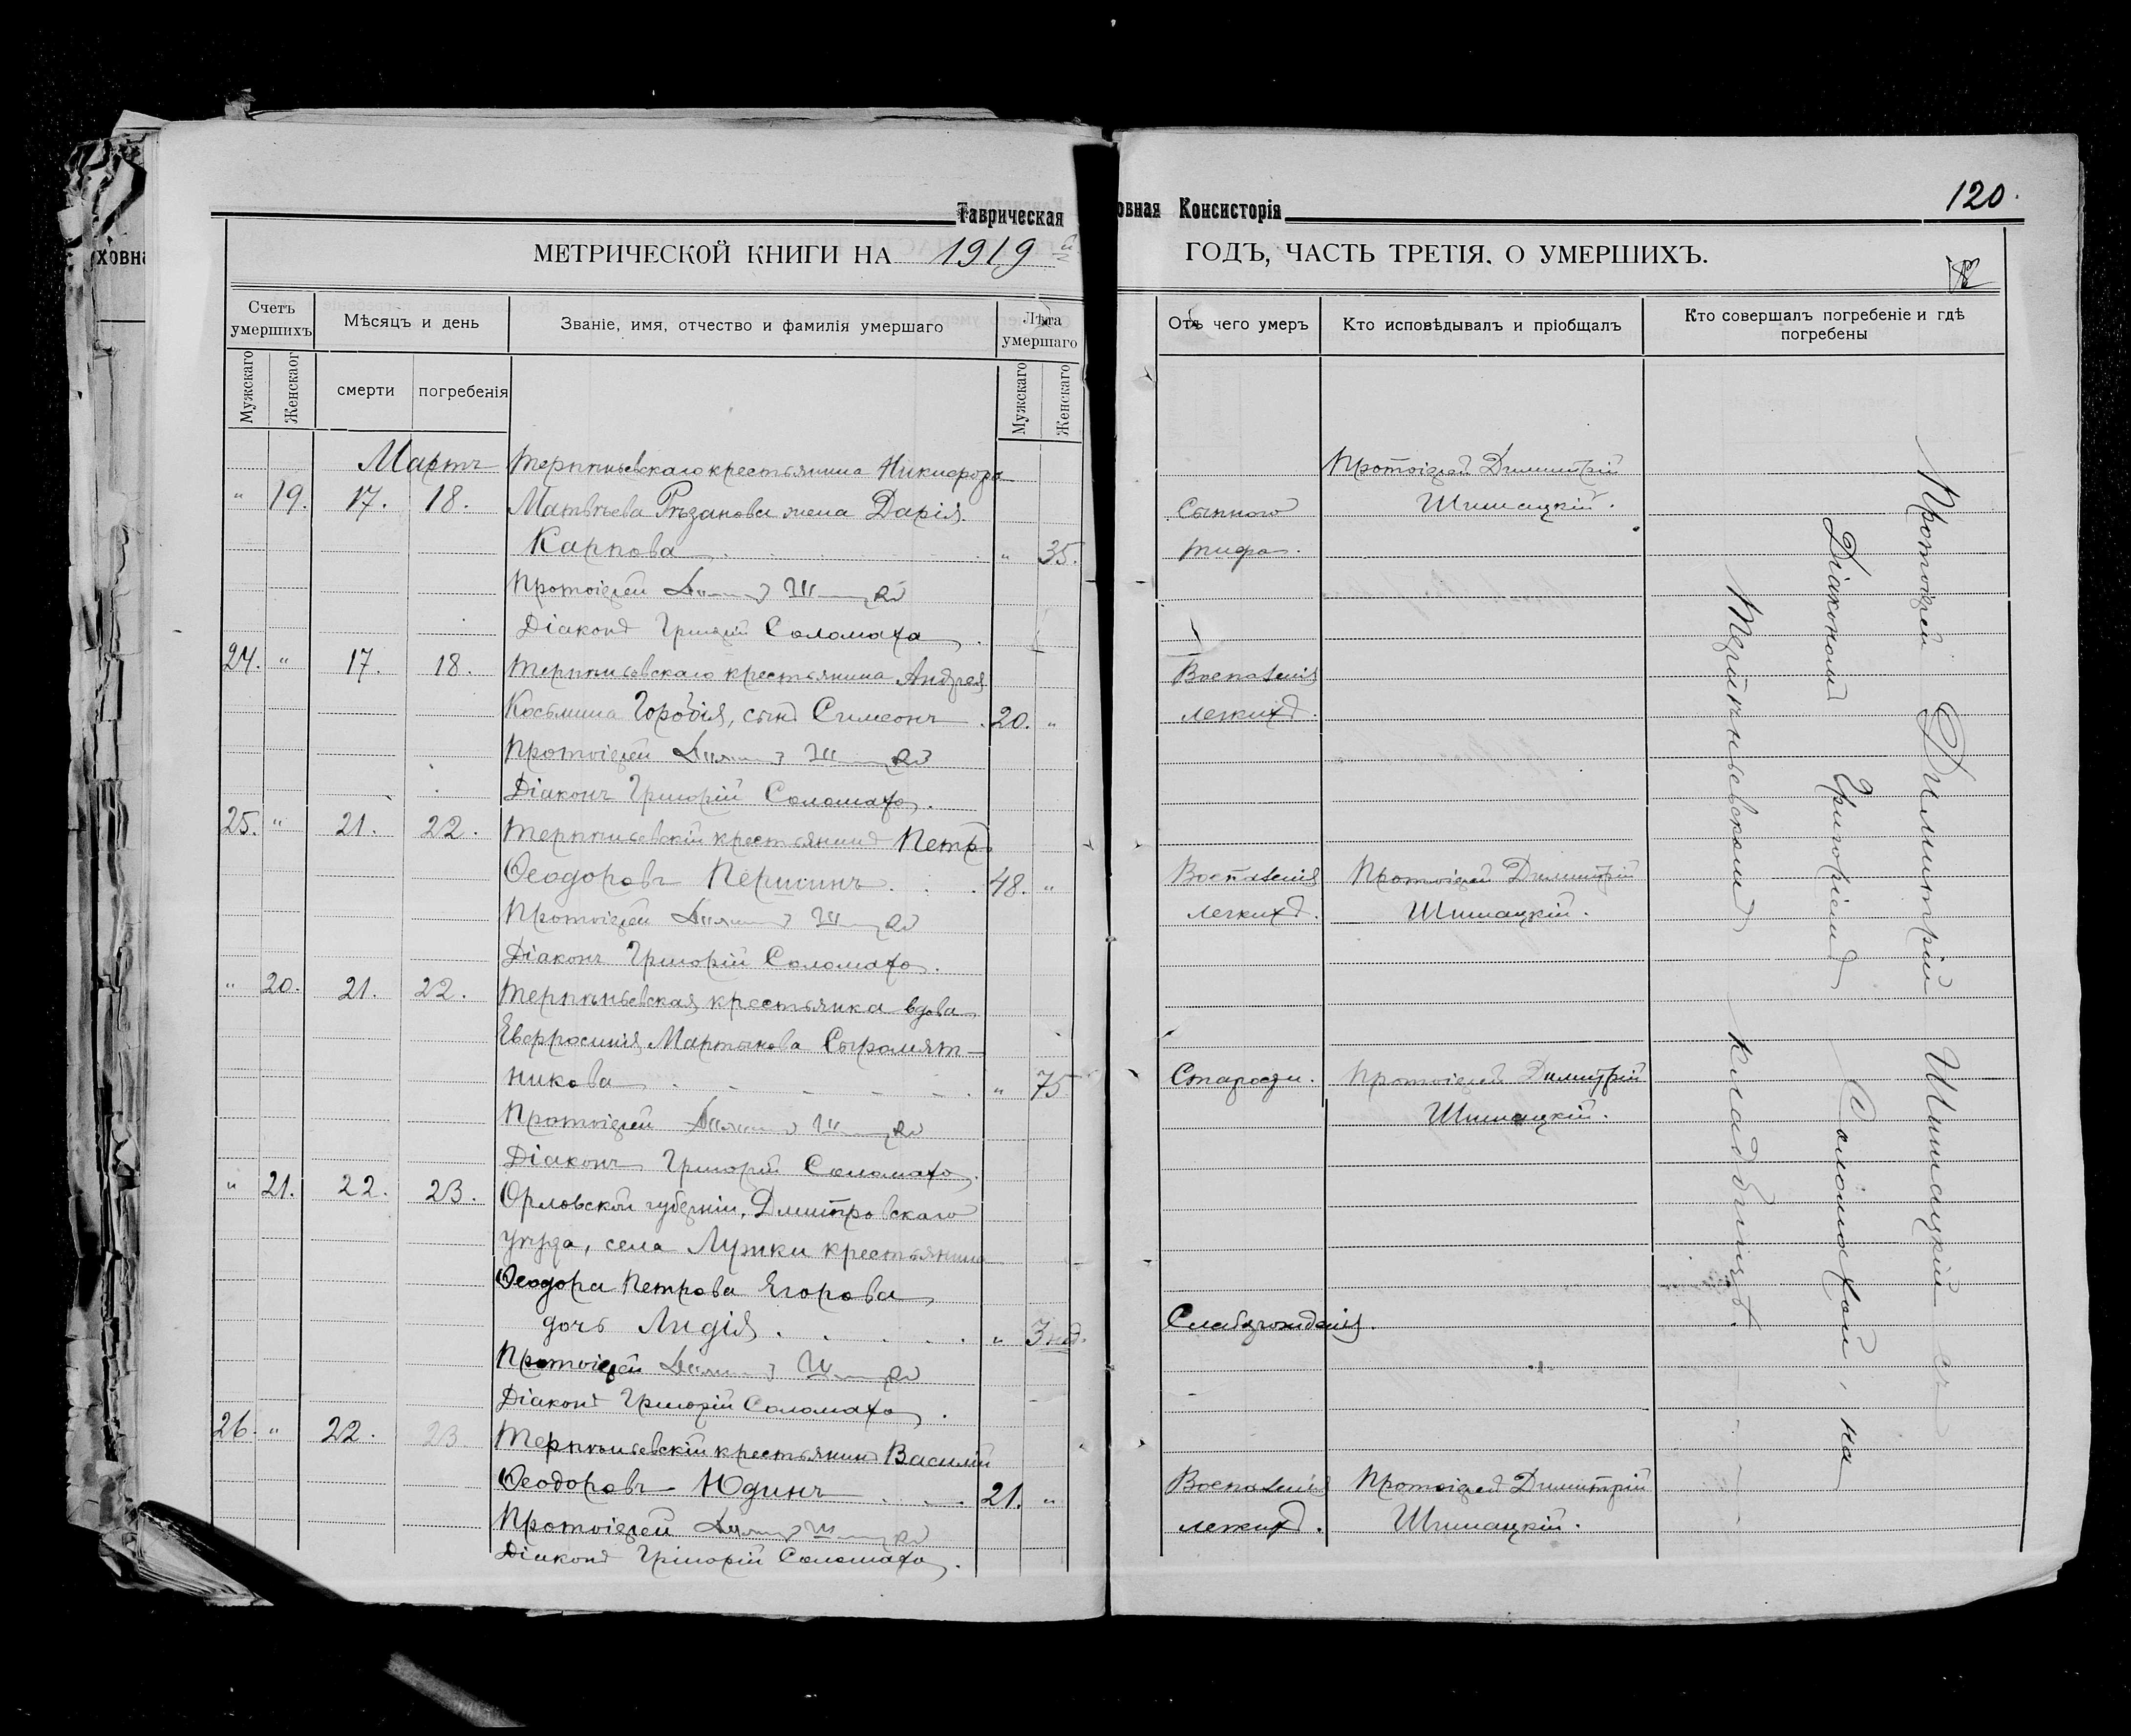 ховна
Таврическая
овная Консисторія
120.
МЕТРИЧЕСКОЙ КНИГИ НА 1919 й
ГОДЪ, ЧАСТЬ ТРЕТІЯ, О УМЕРШИХЪ.
Счетъ умершихъ
Мѣсяцъ и день
Званіе, имя, отчество и фамилія умершаго
Лѣта умершаго
Мужскаго
Женскаог
смерти
погребенія
Мужскаго
Женскаго
Отъ чего умеръ
Кто исповѣдывалъ и пріобщалъ
Кто совершалъ погребеніе и гдѣ
погребены
Мартъ
Терпѣньевскаго крестьянина Никифора
" 19. 17. 18. Матвѣева Рѣзанова жена Дарія
Карпова " 35.
Протоіерей
Діаконъ Григорій Соломаха.
24. " 17. 18. Терпѣньевскаго крестьянина Андрея
Косьмина Горобія, сынъ Симеонъ 20. "
Протоіерей
Діаконъ Григорій Соломаха.
25. " 21. 22. Терпѣньевскій крестьянинъ Петръ
Ѳеодоровъ Першинъ 48. "
Протоіерей
Діаконъ Григорій Соломаха.
" 20. 21. 22. Терпѣньевская крестьянка вдова
Евфросинія Мартынова Сыромят-
никова " 75
Протоіерей
Діаконъ Григорій Соломаха.
" 21. 22. 23. Орловской губерніи, Дмитровскаго
уѣзда, села Лужки крестьянина
Ѳеодора Петрова Егорова
дочь Лидія " 3 нед.
Протоіерей
Діаконъ Григорій Соломаха.
26. " 22. 23. Терпѣньевскій крестьянинъ Василій
Ѳеодоровъ Юдинъ 21. "
Протоіерей
Діаконъ Григорій Соломаха.
Протоіерей Димитрій
Сыпного Шишацкій.
тифа.
Воспаленія
легкихъ.
Воспаленія Протоіерей Димитрій
легкихъ. Шишацкій.
Старости. Протоіерей Димитрій
Шишацкій.
Слаборожденія.
"
Воспаленія Протоіерей Димитрій
легкихъ. Шишацкій.
Протоіерей Димитрій Шишацкій съ
Діакономъ Григоріемъ Соломахой, на
Терпѣньевскомъ кладбищѣ.